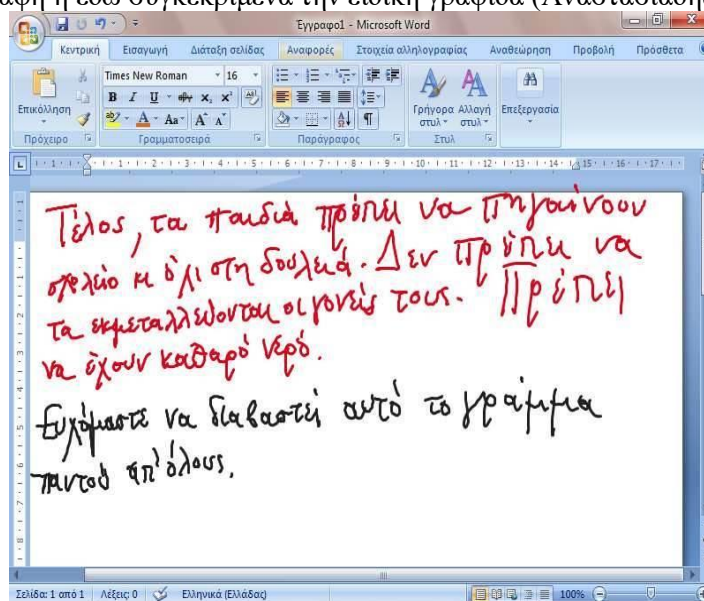 αφή ή εδώ συγκεκριμένα την ειδική γραφίδα (Αναστασιάδης
Έγγραφο1 - Microsoft Word
Κεντρική Εισαγωγή Διάταξη σελίδας Αναφορές Στοιχεία αλληλογραφίας Αναθεώρηση Προβολή Πρόσθετα
Times New Roman 16
Επικόλληση
Γρήγορα στυλ
Αλλαγή στυλ
Επεξεργασία
Πρόχειρο Γραμματοσειρά Παράγραφος Στυλ
Τέλος, τα παιδιά πρέπει να πηγαίνουν
σχολείο κ όχι στη δουλειά. Δεν πρέπει να
τα εκμεταλλεύονται οι γονείς τους. Πρέπει
να έχουν καθαρό νερό.
Ευχόμαστε να διαβαστεί αυτό το γράμμα
παντού απ' όλους.
Σελίδα: 1 από 1 Λέξεις: 0 Ελληνικά (Ελλάδας) 100%